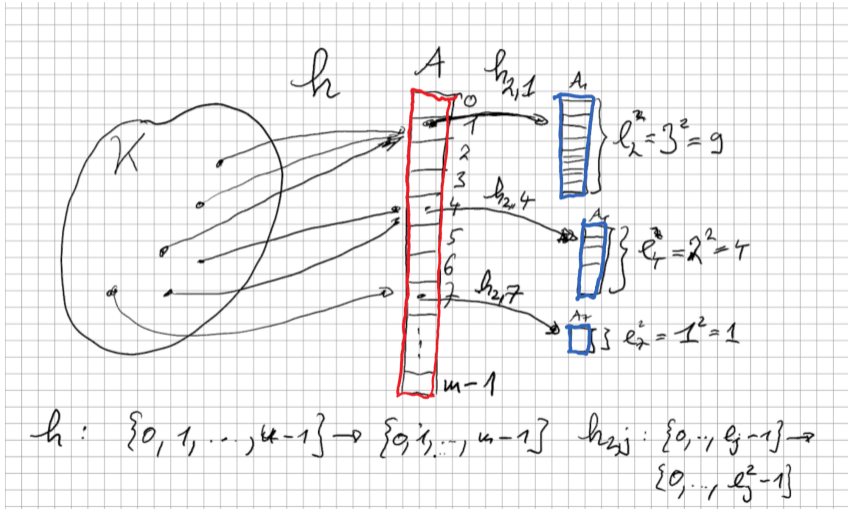 h A h₂,₁ A₁
K
0
1
2
3
4
5
6
7
m-1
ℓ₂² = 3² = 9
h₂,₄
ℓ₄² = 2² = 4
h₂,₇
A₇
ℓ₇² = 1² = 1
h : {0, 1, ..., u-1} → {0, 1, .., m-1} h₂,j : {0, .., ℓj-1} →
{0, .., ℓj²-1}